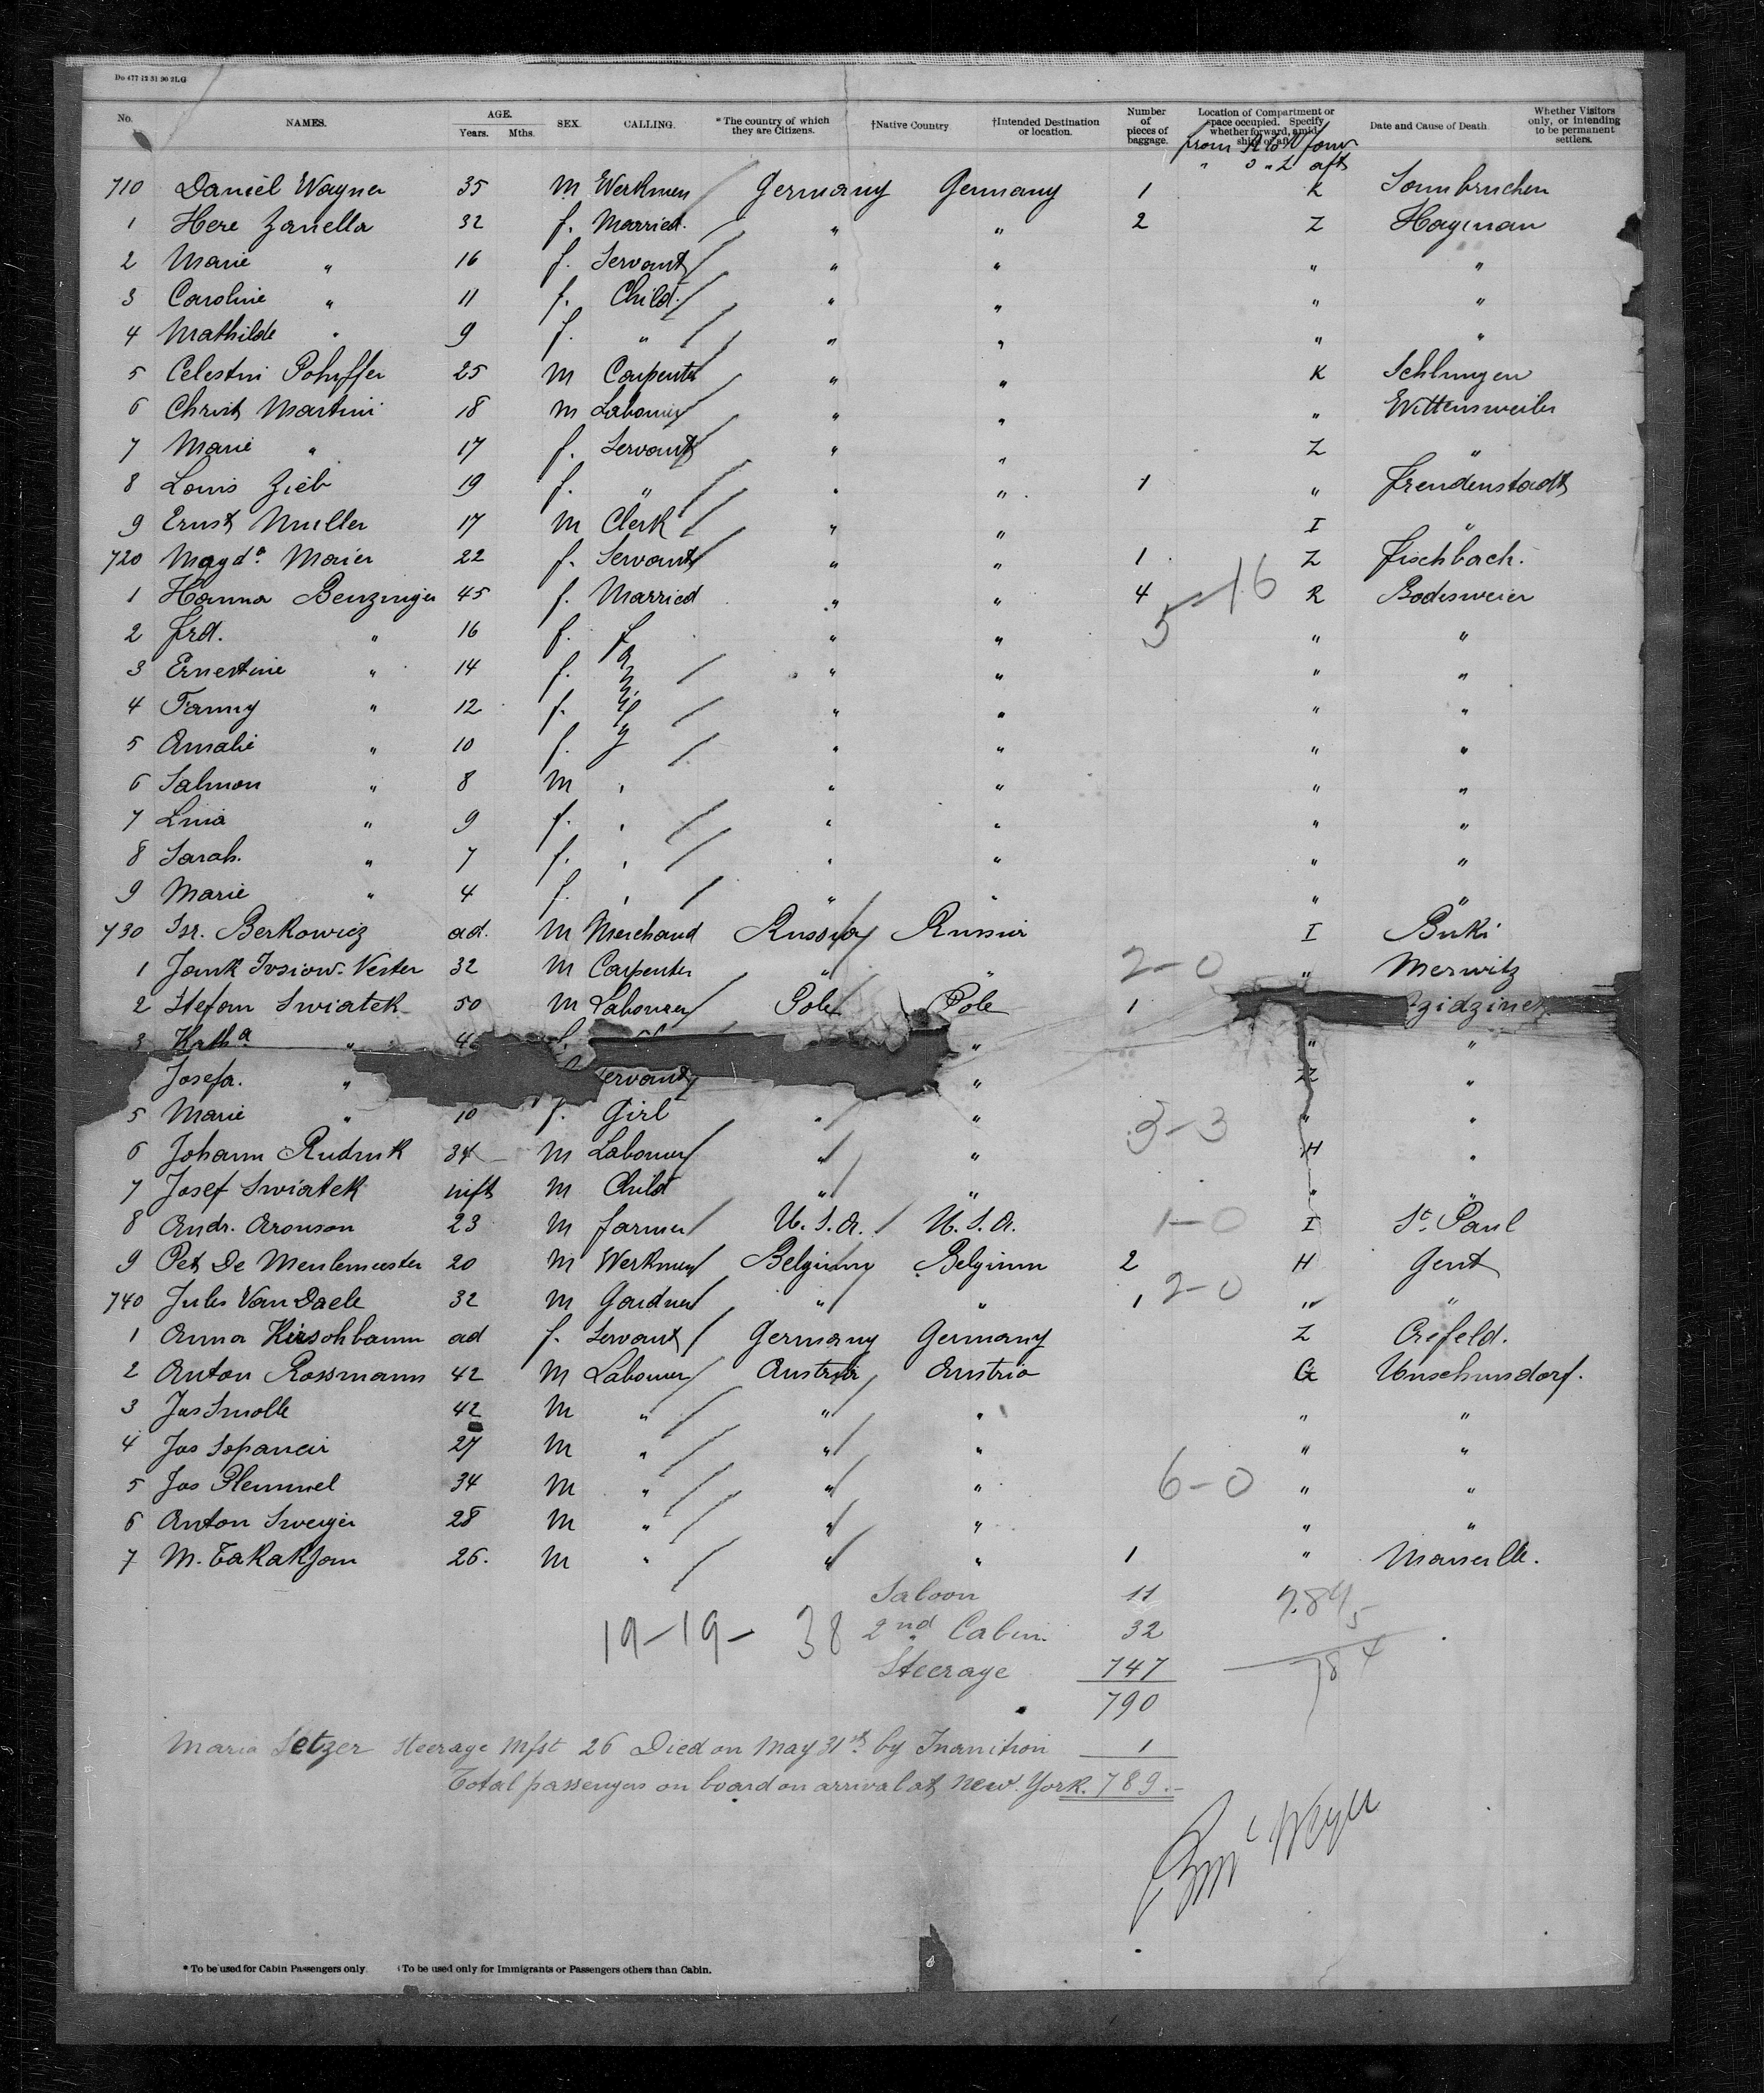 Do 477 12 31 90 2LG
No. NAMES. AGE. Years. Mths. SEX. CALLING. *The country of which they are Citizens. †Native Country †Intended Destination or location. Number of pieces of baggage. Location of Compartment or space occupied. Specify whether forward, amidships or aft Date and Cause of Death Whether Visitors only, or intending to be permanent settlers.
from to forw
" " aft
710 Daniel Wagner 35 M Werkmen Germany Germany 1 K
1 Here Zanella 32 f. Married " " 2 Z Hagenau
2 Marie " 16 f. Servant " " " "
3 Caroline " 11 f. Child " " " "
4 Mathilde " 9 f. " " " " "
5 Celestin 25 M Carpenter " " K
6 Christ Martini 18 M Labourer " " " Wittensweiler
7 Marie " 17 f. Servant " " Z "
8 Louis Zieb 19 f. " " " 1 " Freudenstadt
9 Ernst Muller 17 M Clerk " " I "
720 Magda Maier 22 f. Servant " " 1 Z Fischbach.
1 Hanna Benzinger 45 f. Married " " 4 R Bodesweier
5-16
2 Frd. " 16 f. family " " " "
3 Ernestine " 14 f. " " " "
4 Fanny " 12 f. " " " "
5 Amalie " 10 f. " " " "
6 Salmon " 8 M " " " " "
7 Lina " 9 f. " " " " "
8 Sarah. " 7 f. " " " " "
9 Marie " 4 f. " " " " "
730 Isr. Berkowicz ad. M Merchand Russia Russia I Buki
1 Jank 32 M Carpenter " " 2-0 " Merwitz
2 Stefan Swiatek 50 M Labourer Pole Pole 1
3 Katha " f. " " "
Josefa. " ervant " Z "
5 Marie " 10 f. Girl " " " "
3-3
6 Johann Rudnik 34 M Labourer " " H "
7 Josef Swiatek inft M Child " " " "
8 Andr. Aronson 23 M farmer U.S.A. U.S.A. 1-0 I St. Paul
9 Pet De Meulemeester 20 M Werkmen Belgium Belgium 2 H Gent
740 Jules Van Daele 32 M Gardner " " 1 2-0 " "
1 Anna Kirschbaum ad f. Servant Germany Germany Z Crefeld.
2 Anton Rossmann 42 M Labourer Austria Austria G
3 Jos Smolle 42 M " " " " "
4 Jos 27 M " " " " "
5 Jos Plemmel 34 M " " " 6-0 " "
6 Anton 28 M " " " " "
7 M. Takakjan 26. M " " " 1 " Marseille.
Saloon 11
19-19- 38 2nd Cabin. 32
Steerage 747
784
790
Maria Setzer steerage Mfst 26 Died on May 31st by Inanition 1
Total passengers on board on arrival at New York. 789.-
* To be used for Cabin Passengers only. †To be used only for Immigrants or Passengers others than Cabin.